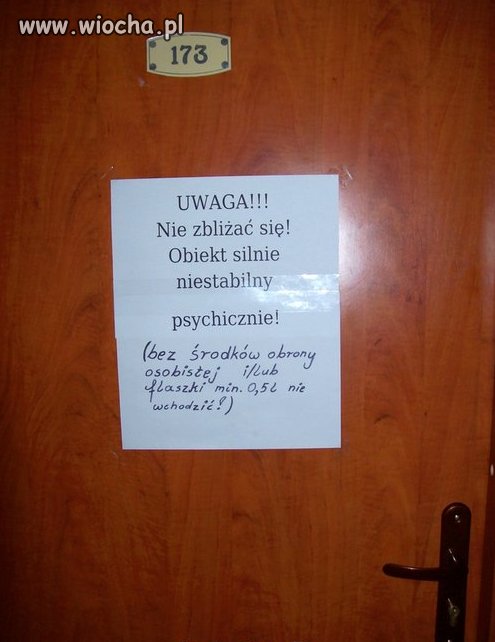 www.wiocha.pl
173
UWAGA!!!
Nie zbliżać się!
Obiekt silnie
niestabilny
psychicznie!
(bez środków obrony
osobistej i/lub
flaszki min. 0,5l nie
wchodzić!)